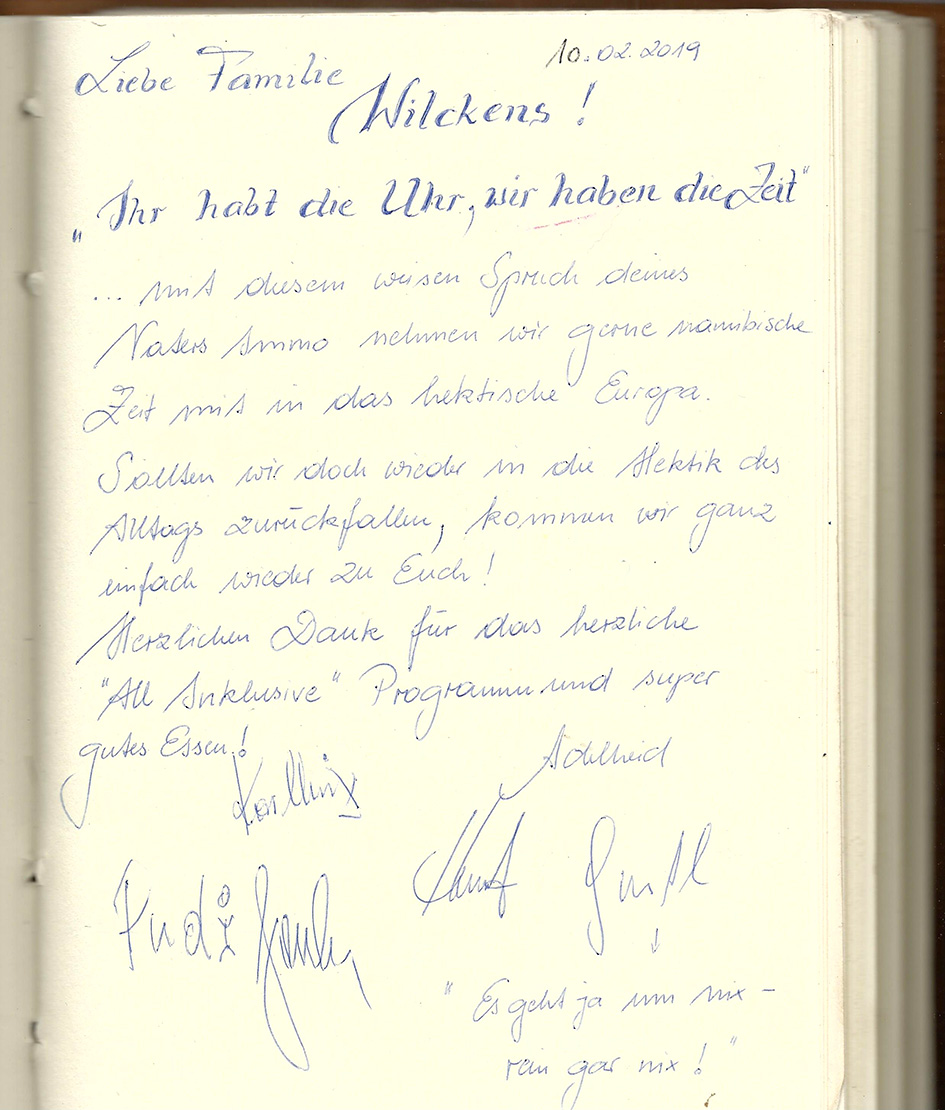 10.02.2019
Liebe Familie
Wilckens!
„Ihr habt die Uhr, wir haben die Zeit"
... mit diesem weisen Spruch deines
Vaters Immo nehmen wir gerne namibische
Zeit mit in das hektische Europa.
Sollten wir doch wieder in die Hektik des
Alltags zurückfallen, kommen wir ganz
einfach wieder zu Euch!
Herzlichen Dank für das herzliche
"All Inklusive" Programm und super
gutes Essen!
Adelheid
Karlheinz
Kurt Gustl
↓
" Es geht ja um nix –
rein gar nix! "